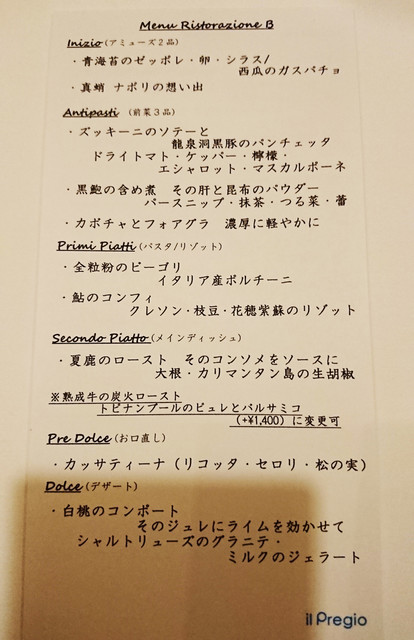 Menu Ristorazione B
Inizio (アミューズ2品)
・青海苔のゼッポレ・卵・シラス/
西瓜のガスパチョ
・真蛸 ナポリの想い出
Antipasti (前菜3品)
・ズッキーニのソテーと
龍泉洞黒豚のパンチェッタ
ドライトマト・ケッパー・檸檬・
エシャロット・マスカルポーネ
・黒鮑の含め煮 その肝と昆布のパウダー
パースニップ・抹茶・つる菜・蕾
・カボチャとフォアグラ 濃厚に軽やかに
Primi Piatti (パスタ/リゾット)
・全粒粉のビーゴリ
イタリア産ポルチーニ
・鮎のコンフィ
クレソン・枝豆・花穂紫蘇のリゾット
Secondo Piatto (メインディッシュ)
・夏鹿のロースト そのコンソメをソースに
大根・カリマンタン島の生胡椒
※熟成牛の炭火ロースト
トピナンブールのピュレとバルサミコ
(+¥1,400) に変更可
Pre Dolce (お口直し)
・カッサティーナ (リコッタ・セロリ・松の実)
Dolce (デザート)
・白桃のコンポート
そのジュレにライムを効かせて
シャルトリューズのグラニテ・
ミルクのジェラート
il Pregio